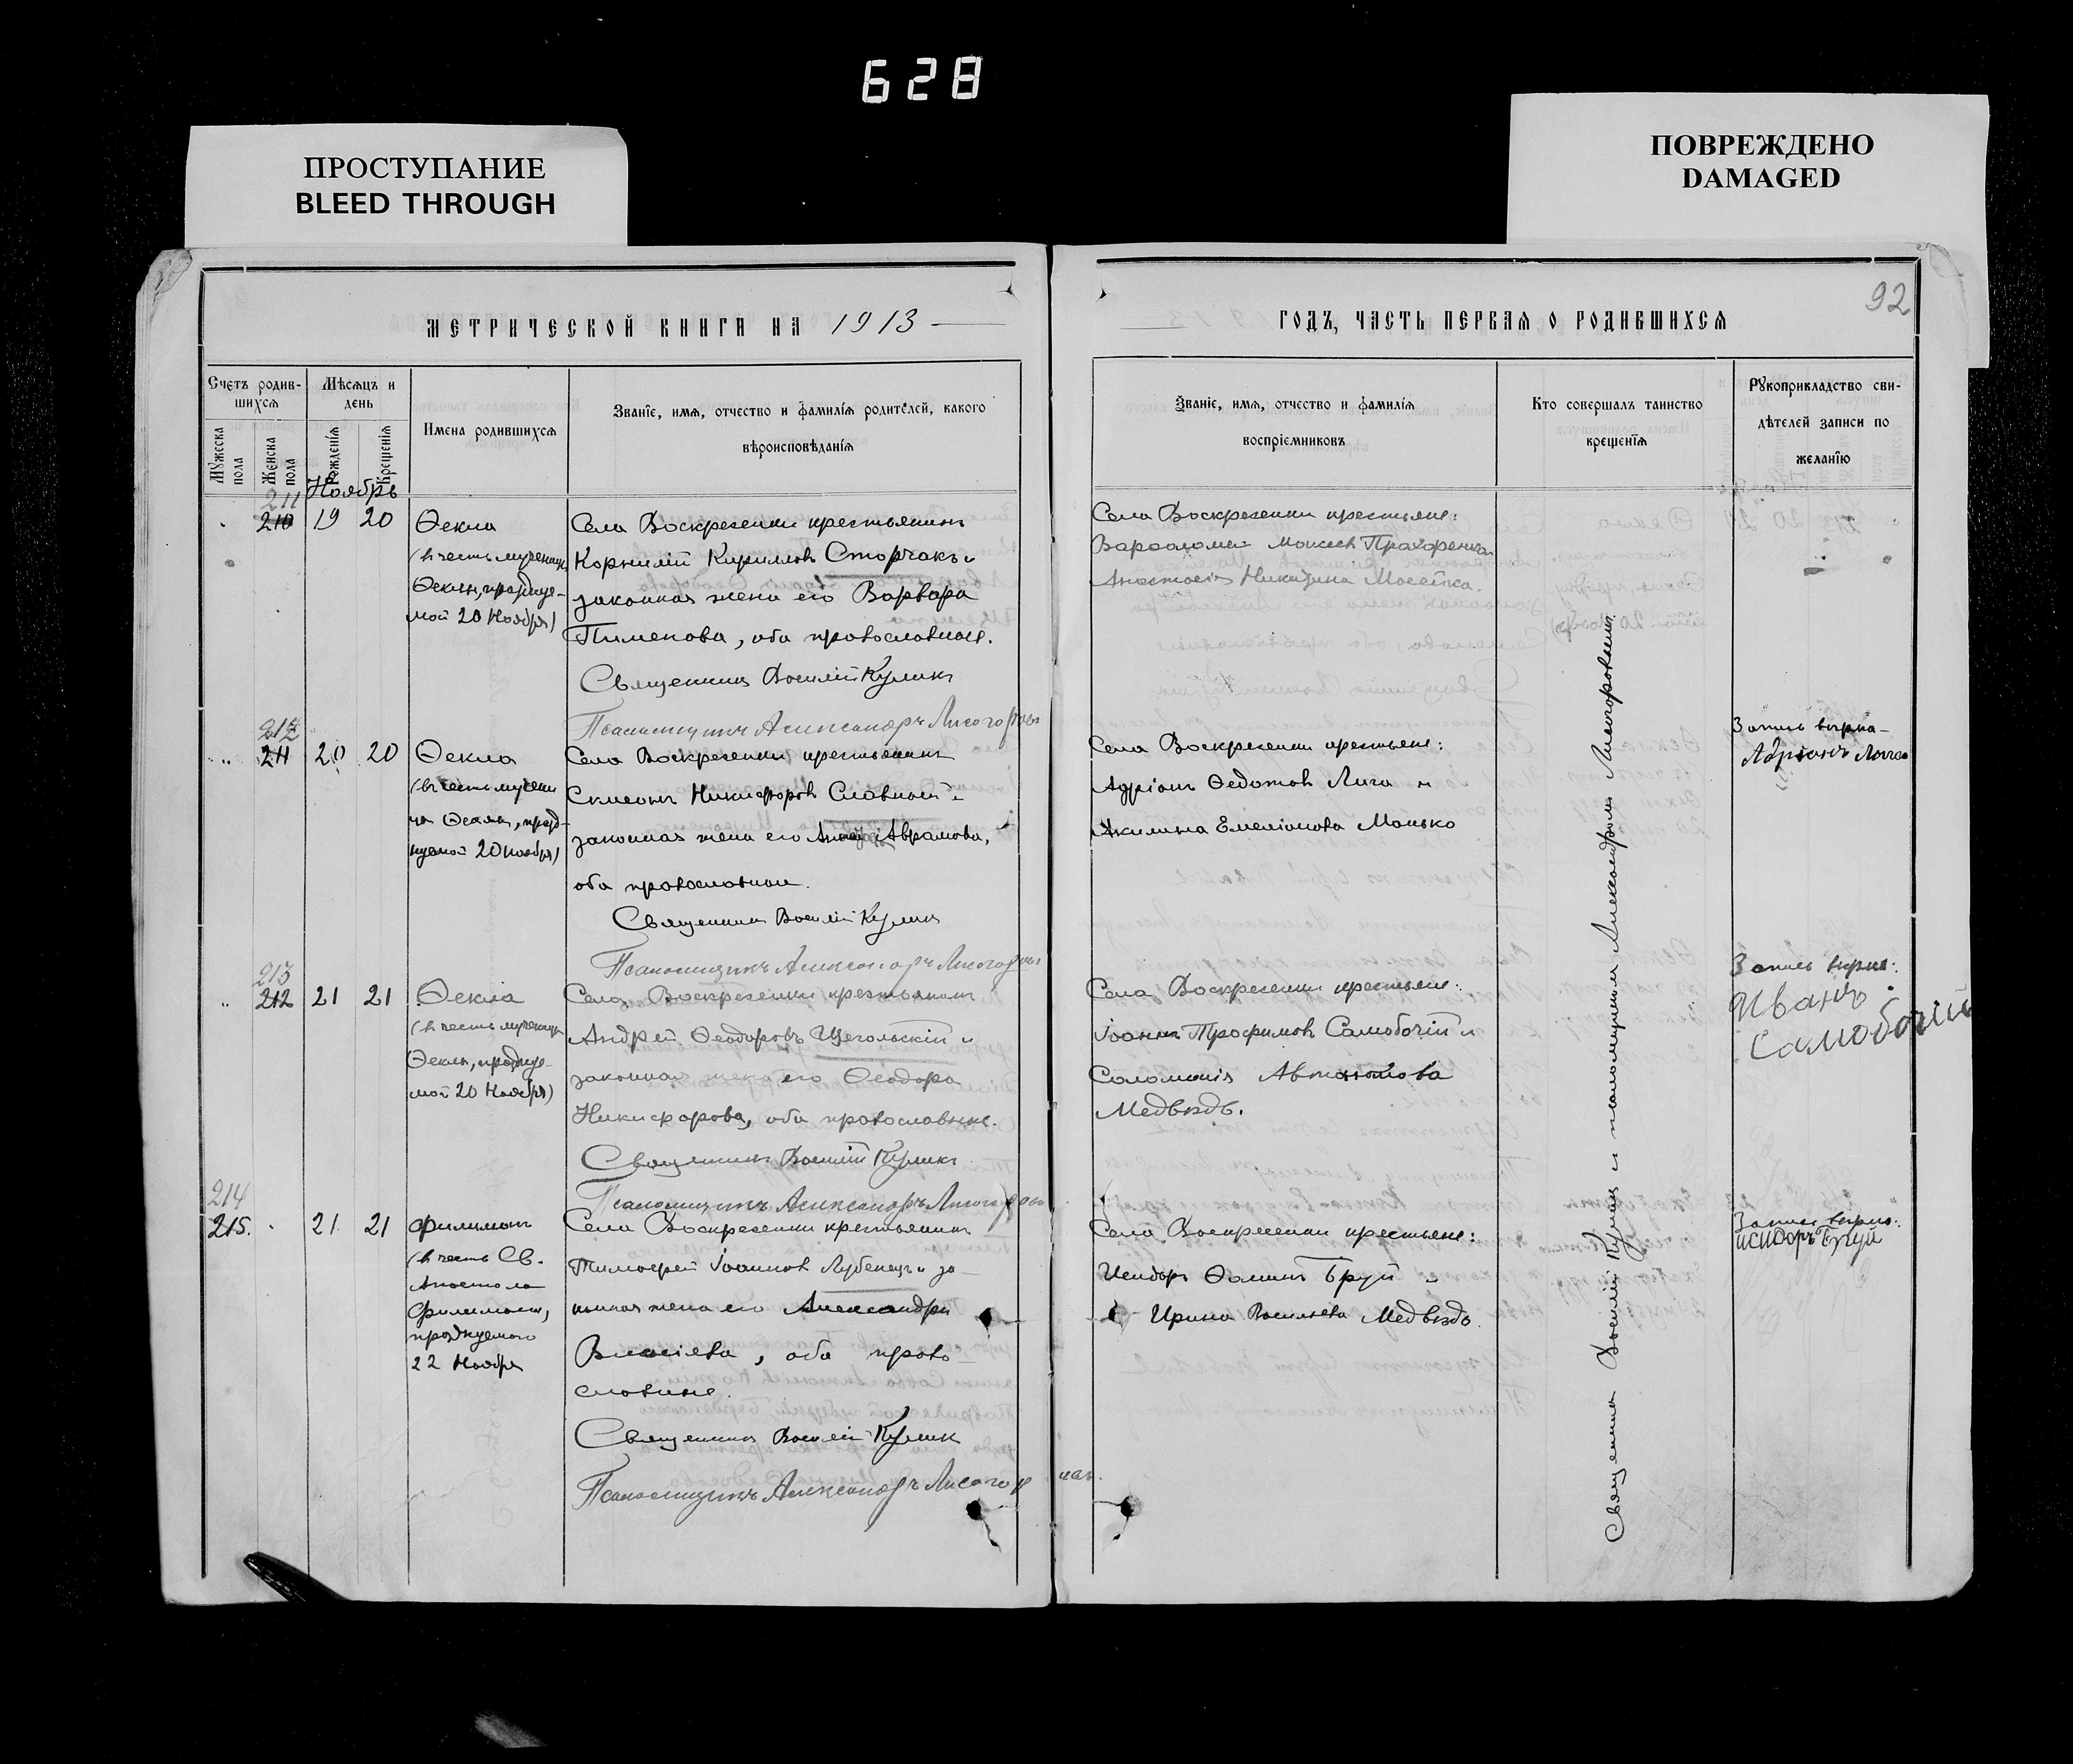 628
ПРОСТУПАНИЕ
BLEED THROUGH
ПОВРЕЖДЕНО
DAMAGED
92
МЕТРИЧЕСКОЙ КНИГИ НА 1913
ГОДЪ, ЧАСТЬ ПЕРВАЯ О РОДИВШИХСЯ
Счетъ родив-
шихся
Мѣсяцъ и
день
Мужеска
пола
Женска
пола
Рожденія
Крещенія
Имена родившихся
Званіе, имя, отчество и фамилія родителей, какого
вѣроисповѣданія
Званіе, имя, отчество и фамилія
воспріемниковъ
Кто совершалъ таинство
крещенія
Рукоприкладство сви-
дѣтелей записи по
желанію
Ноябрь
211
210 19 20
Ѳекла
(въ честь мученицы
Ѳеклы, праздкуе-
мой 20 Ноября)
Села Воскресенки крестьянинъ
Корнилій Кириловъ Сторчакъ и
законная жена его Варвара
Пименова, оба православные.
Священникъ Василій Куликъ
Псаломщикъ Александръ Лисогоровъ
Села Воскресенки крестьяне:
Варѳоломей Моисеевъ Прохоренко
Анастасія Никитина Мосейка.
212
211 20 20
Ѳекла
(въ честь мучени
цы Ѳеклы, празд-
куемой 20 ноября)
Села Воскресенки крестьянинъ
Симеонъ Никифоровъ Славный и
законная жена его Аврамова,
оба православные.
Священникъ Василій Куликъ
Псаломщикъ Александръ Лисогоровъ
Села Воскресенки крестьяне:
Адріанъ Ѳедотовъ Лига и
Акилина Емеліанова Манько
Запись вѣрна-
Адріанъ
213
212 21 21
Ѳекла
(въ честь мученицы
Ѳеклы, праздкуе-
мой 20 Ноября)
Села Воскресенки крестьянинъ
Андрей Ѳеодоровъ Щегольскій и
законная жена его Ѳеодора
Никифорова, оба православные.
Священникъ Василій Куликъ
Псаломщикъ Александръ Лисогоровъ
Села Воскресенки крестьяне:
Іоаннъ Трофимовъ Самобочій и
Соломонія Автономова
Медвѣдь.
Запись вѣрна:
Иванъ
Самобочій
214
215. 21 21
Филимонъ
(въ честь Св.
Апостола
Филимона,
праздкуемого
22 Ноября
Села Воскресенки крестьянинъ
Тимоѳей Іоанновъ Лубенецъ и за-
конная жена его Александра
Власіева, оба право-
славные.
Священникъ Василій Куликъ
Псаломщикъ Александръ Лисогоровъ
Села Воскресенки крестьяне:
Исидоръ Ѳоминъ Бруй и
Ирина Васильева Медвѣдь.
Запись вѣрна:
Исидоръ Бруй
Священникъ Василій Куликъ и псаломщикъ Александръ Лисогоровъ